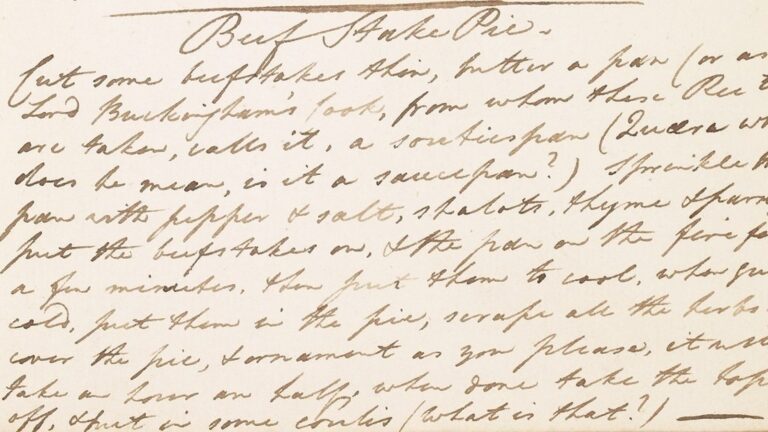 Beef Stake Pie.
Cut some beefstakes thin, butter a pan (or as
Lord Buckingham's cook, from whom these Rec
are taken, calls it, a soutiespan (Quære wh
does he mean, is it a saucepan?) Sprinkle th
pan with pepper & salt, shalots, thyme & pars
put the beefstakes on, & the pan on the fire fo
a few minutes, then put them to cool, when qu
cold, put them in the pie, scrape all the herbs
cover the pie, & ornament as you please, it will
take an hour an half, when done take the top
off, & put in some coulis (what is that?)